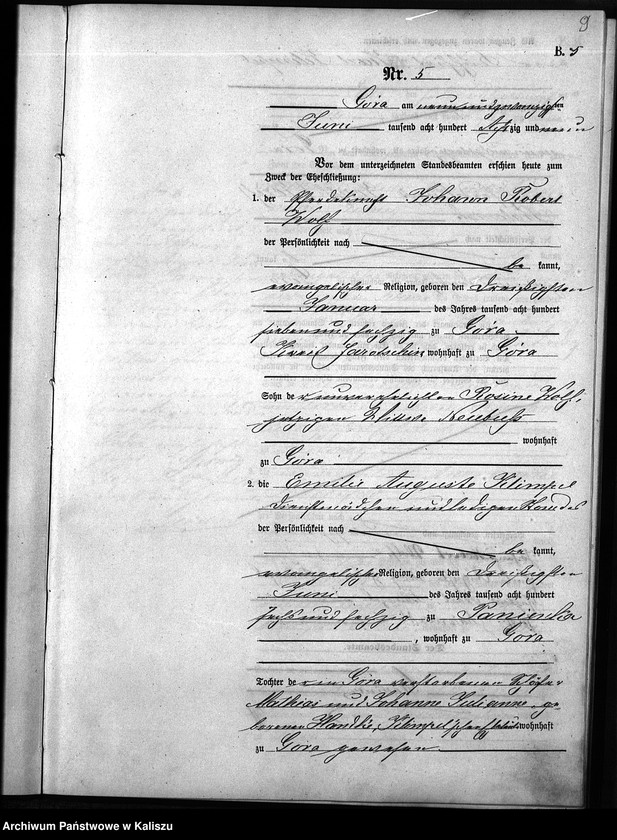 9
B. 5
Nr. 5
Góra am neunundzwanzigsten
Juni tausend acht hundert Achtzig und neun
Vor dem unterzeichneten Standesbeamten erschien heute zum
Zweck der Eheschließung:
1. der Pferdeknecht Johann Robert
Wolf
der Persönlichkeit nach
be kannt,
evangelischer Religion, geboren den dreißigsten
Januar des Jahres tausend acht hundert
sieben und sechzig zu Góra
Kreis Jarotschin wohnhaft zu Góra
Sohn der unverehelichten Rosine Wolf,
jetzigen Wittwe
wohnhaft
zu Góra
2. die Emilie Auguste Klimpel
Dienstmädchen und ledigen Standes
der Persönlichkeit nach
be kannt,
evangelischer Religion, geboren den dreißigsten
Juni des Jahres tausend acht hundert
sechs und sechzig zu Panienka
, wohnhaft zu Góra
Tochter der in Góra verstorbenen Schäfer
Mathias und Johanne Julianne ge-
borenen Handke, Klimpel'schen Eheleute wohnhaft
zu Gora gewesen
Archiwum Państwowe w Kaliszu